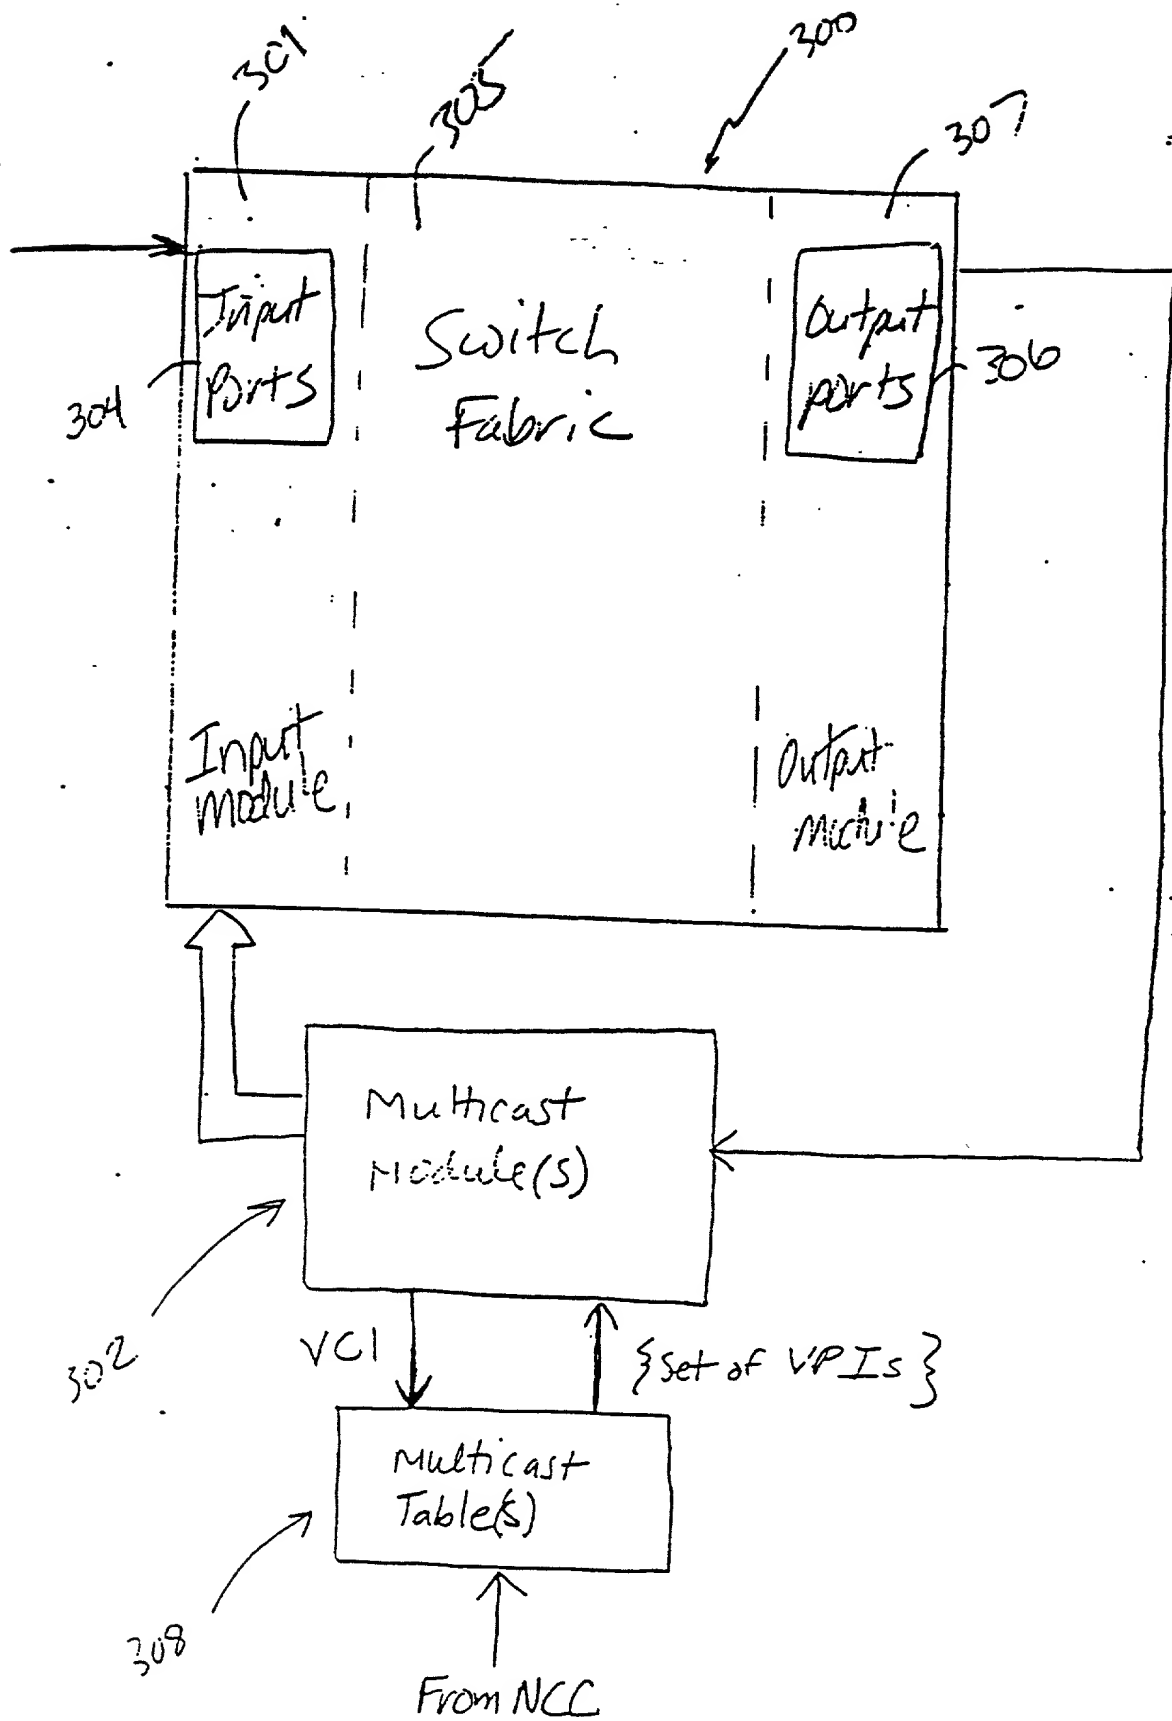 301
305
300
307
Input
Ports
304
Switch
Fabric
Output
ports
306
Input
Module
Output
Module
Multicast
Module(s)
302
VCI
{set of VPIs}
Multicast
Table(s)
308
From NCC